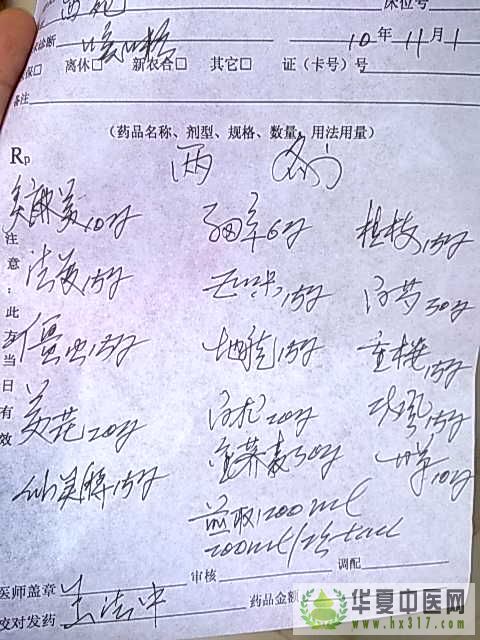 床位号
诊断 10年11月1
保□ 离休□ 新农合□ 其它□ 证(卡号)号
备注
(药品名称、剂型、规格、数量、用法用量)
Rp 两剂
炙麻黄10g 细辛6g 桂枝15g
法夏15g 五味15g 白芍30g
僵虫15g 地龙15g 重楼15g
20g 20g 15g
仙灵脾15g 金荞麦30g 甘草10g
煎取1200ml
200ml/次
注意:此方当日有效
医师盖章 审核 调配
校对发药 药品金额
华夏中医网
www.hx317.com